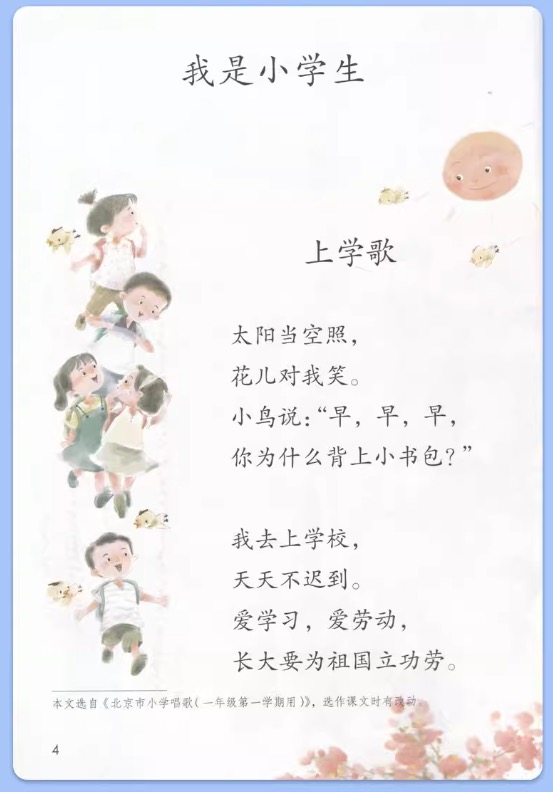 我是小学生
上学歌
太阳当空照，
花儿对我笑。
小鸟说：“早，早，早，
你为什么背上小书包？”
我去上学校，
天天不迟到。
爱学习，爱劳动，
长大要为祖国立功劳。
本文选自《北京市小学唱歌（一年级第一学期用）》，选作课文时有改动。
4